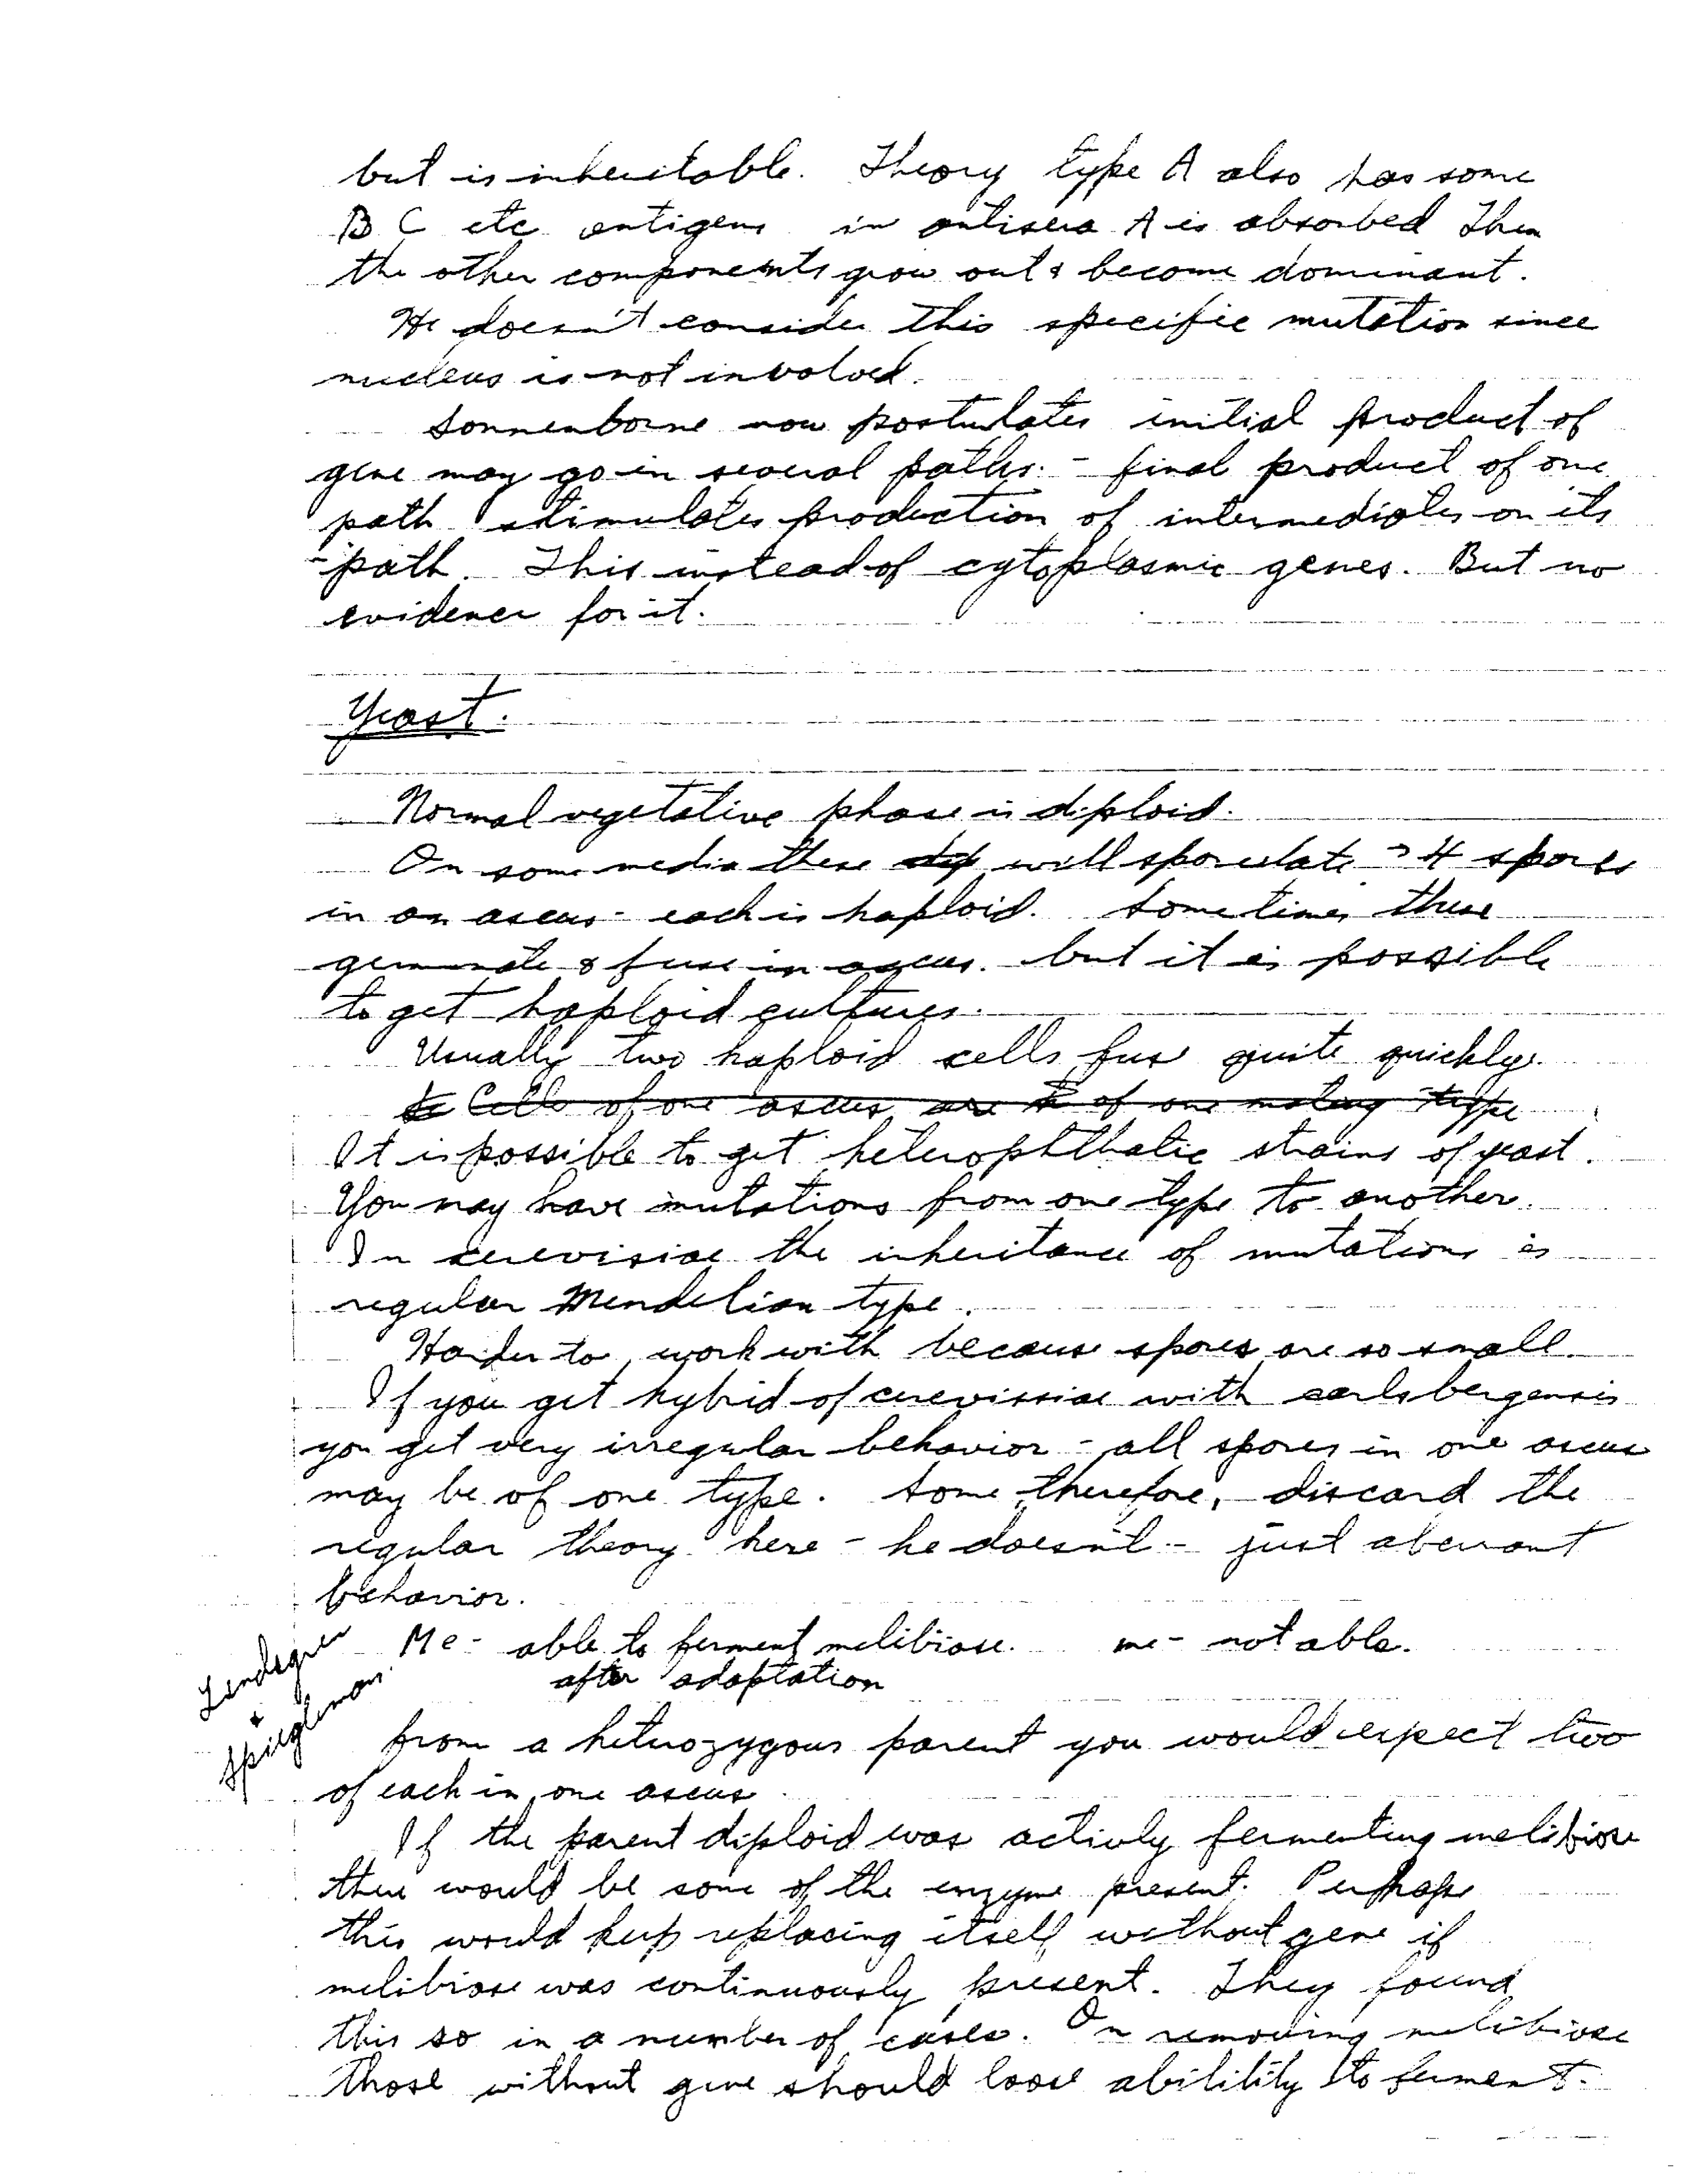 but is inheritable. Theory type A also has some
B C etc antigens in antisera A is absorbed Then
the other components grow out & become dominant.
He doesn't consider this specific mutation since
nucleus is not involved.
Sonnenborne now postulates initial product of
gene may go in several paths. - final product of one
path stimulates production of intermediates on its
path. This instead of cytoplasmic genes. But no
evidence for it.
Yeast.
Normal vegetative phase is diploid.
On some media these dip will sporulate → 4 spores
in an ascus - each is haploid. Sometimes these
germinate & fuse in ascus. but it is possible
to get haploid cultures.
Usually two haploid cells fuse quite quickly.
Cells of one ascus are of one mating type
It is possible to get heterophthalic strains of yeast.
You may have mutations from one type to another.
In cerevisiae the inheritance of mutations is
regular Mendelian type.
Harder to work with because spores are so small.
If you get hybrid of cerevissiae with carlsbergensis
you get very irregular behavior - all spores in one ascus
may be of one type. Some, therefore, discard the
regular theory here - he doesn't - just aberrant
behavior.
Lindegren
&
Spieglman.
Me - able to ferment melibiose. me - not able.
after adaptation
from a heterozygous parent you would expect two
of each in one ascus
If the parent diploid was activly fermenting melibiose
there would be some of the enzyme present. Perhaps
this would keep replacing itself without gene if
melibiose was continuously present. They found
this so in a number of cases. On removing melibiose
those without gene should loose abilility to ferment.